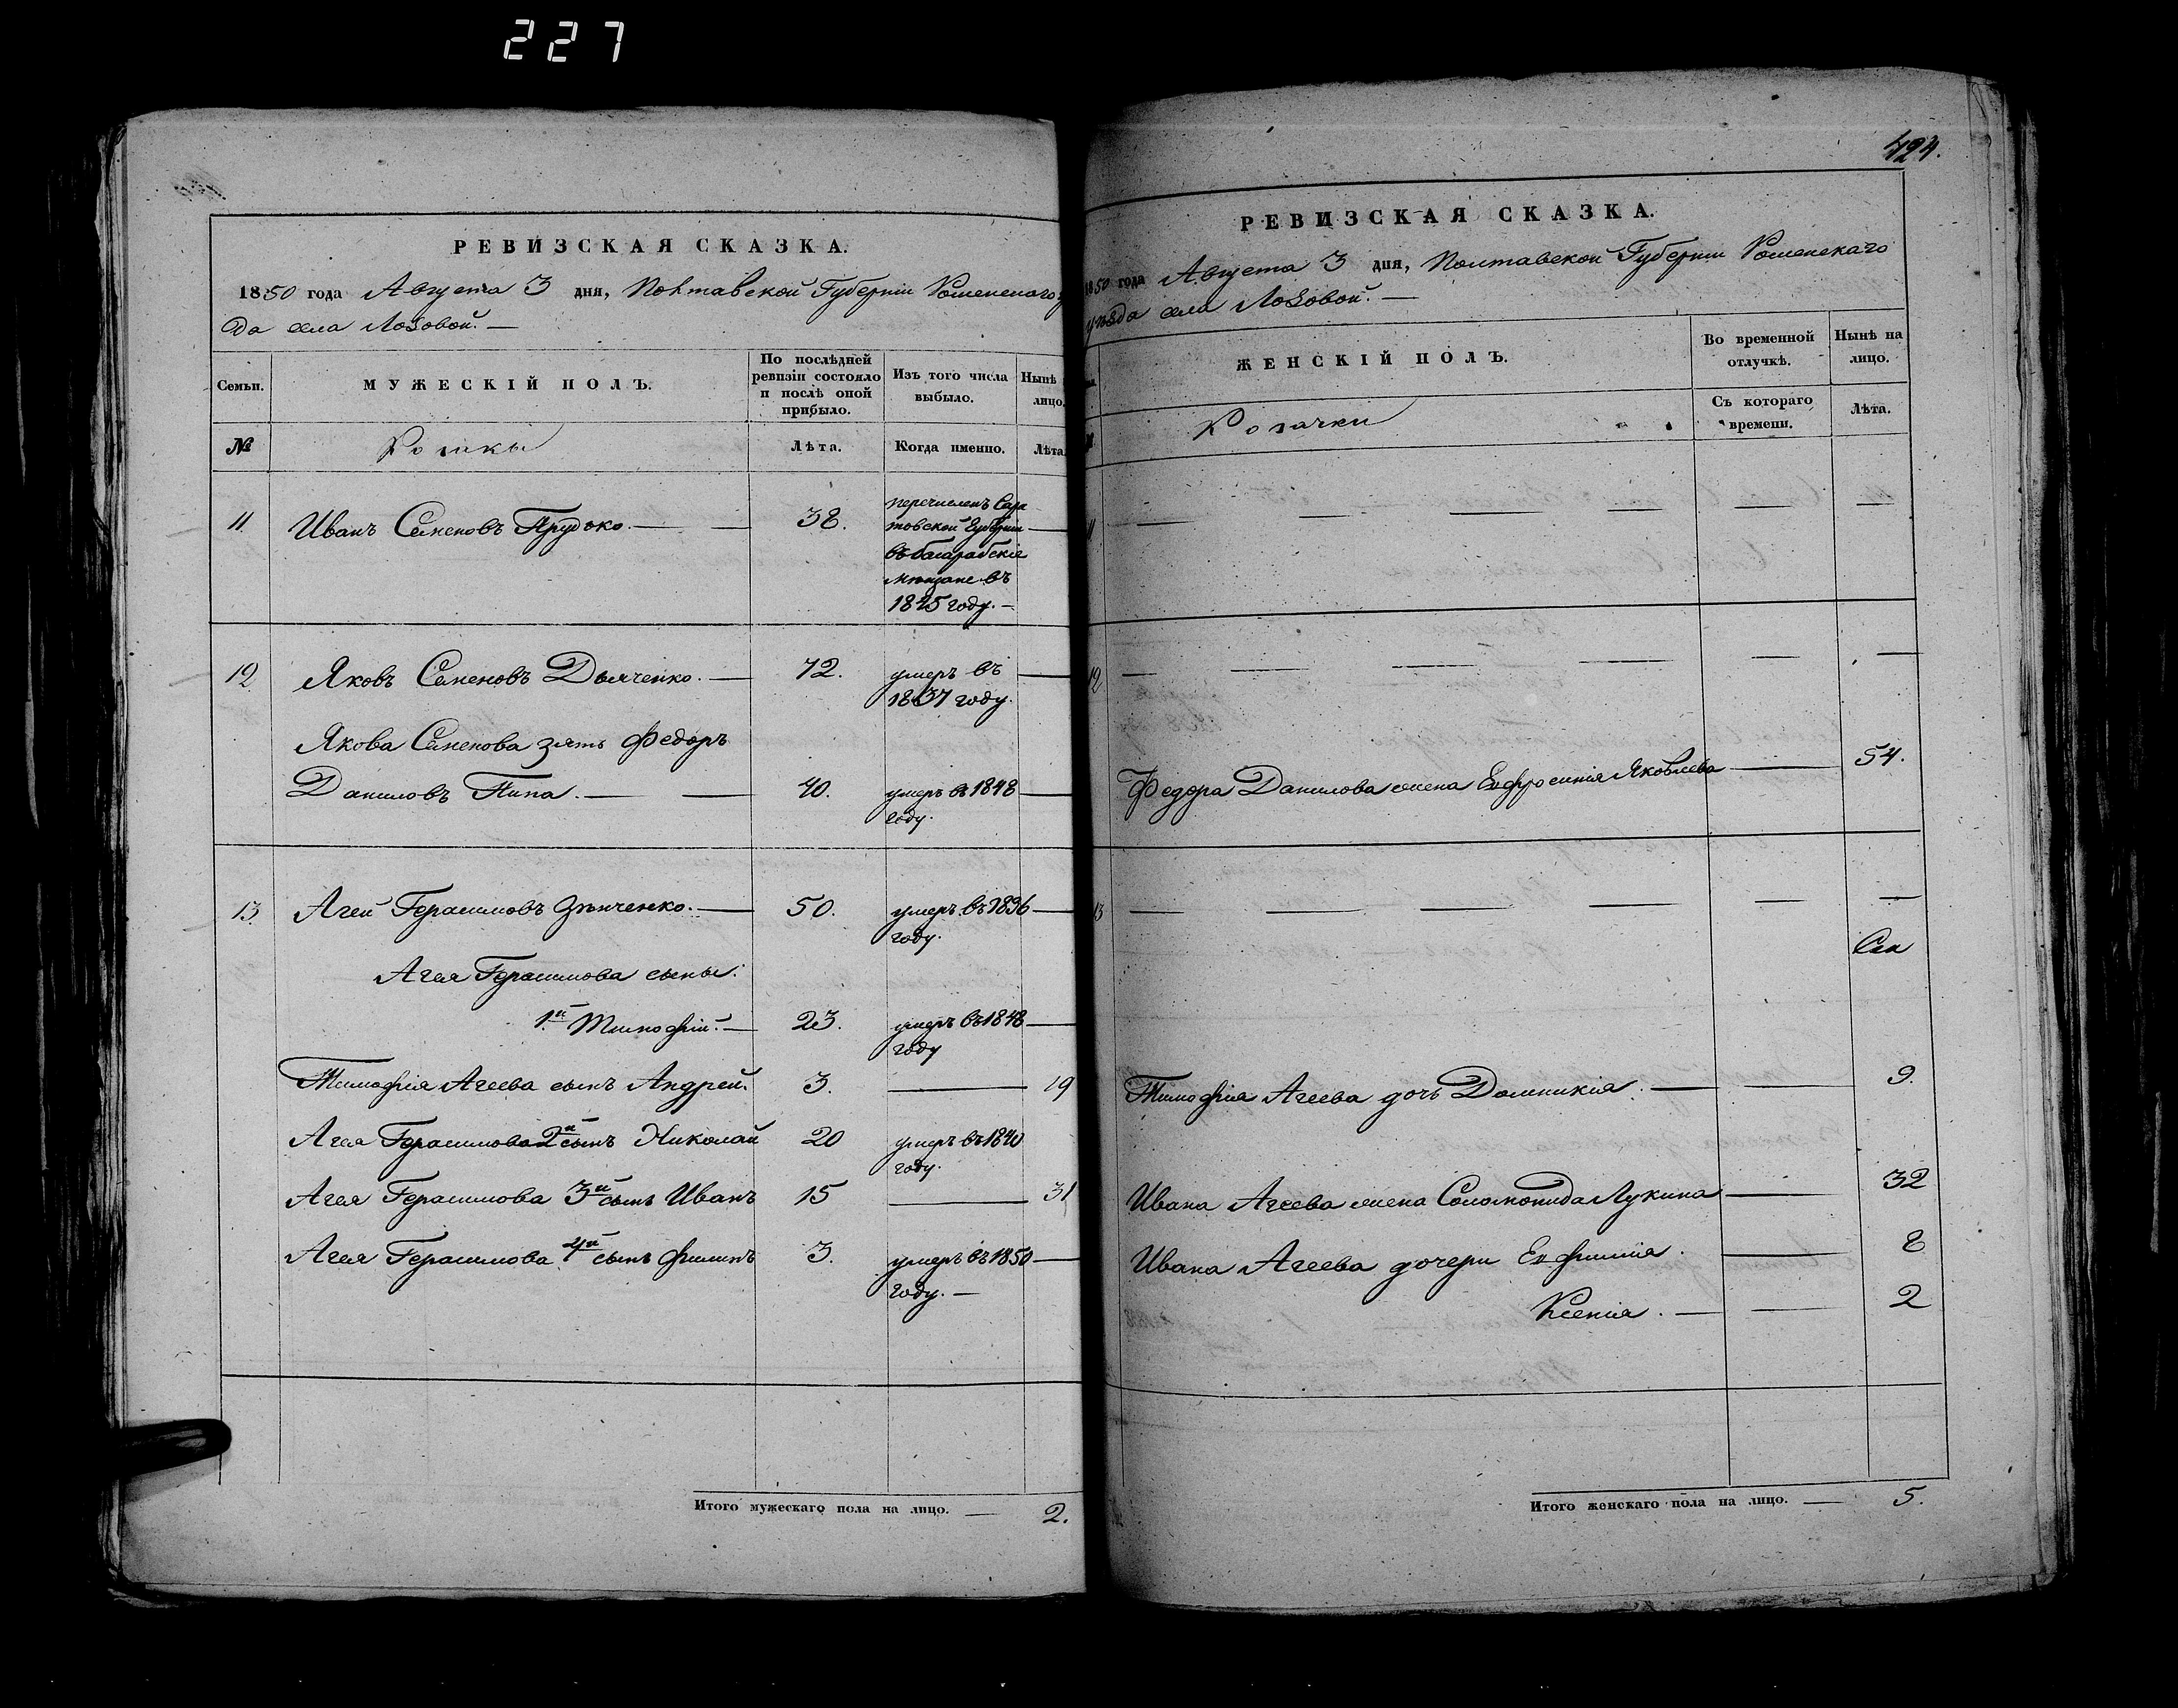 227
РЕВИЗСКАЯ СКАЗКА.
1850 года Августа 3 дня, Полтавской Губерніи Роменскаго
да села Лозовой. —
Семьи.
МУЖЕСКІЙ ПОЛЪ.
По послѣдней ревизіи состояло и послѣ оной прибыло.
Изъ того числа выбыло.
Нынѣ лицо.
№
Козаки
Лѣта.
Когда именно.
Лѣта
11 Иванъ Семеновъ Прудько. — — 38. перечисленъ Сара
товской Губерніи —
въ
мѣщане въ
1845 году. —
12 Яковъ Семеновъ Дьяченко. — 72. умеръ въ —
1837 году.
Якова Семенова зять Федоръ
Даниловъ Пипа. — — 40. умеръ въ 1848 —
году.
13 Агей Герасимовъ Зѣнченко. — 50. умеръ въ 1836 —
году.
Агея Герасимова сыны:
1й Тимофій. — 23. умеръ въ 1848 —
году
Тимофія Агеева сынъ Андрей. 3. — 19
Агея Герасимова 2й сынъ Николай 20 умеръ въ 1840
году.
Агея Герасимова 3й сынъ Иванъ 15 — 31
Агея Герасимова 4й сынъ Филипъ 3. умеръ въ 1850 —
году. —
Итого мужескаго пола на лицо. — 2.
424.
РЕВИЗСКАЯ СКАЗКА.
1850 года Августа 3 дня, Полтавской Губерніи Роменскаго
уѣзда села Лозовой. —
ЖЕНСКІЙ ПОЛЪ.
Во временной отлучкѣ.
Нынѣ на лицо.
Козачки
Съ котораго времени.
Лѣта.
11 — — — — — —
12 — — — — — —
Федора Данилова жена Евфросинія Яковлева — 54.
13 — — — — — —
Тимофія Агеева дочь Домникія. — — 9.
Ивана Агеева жена Соломонида Лукина — 32
Ивана Агеева дочери Евфимія. — 8
Ксенія. — — 2
Итого женскаго пола на лицо. — 5.